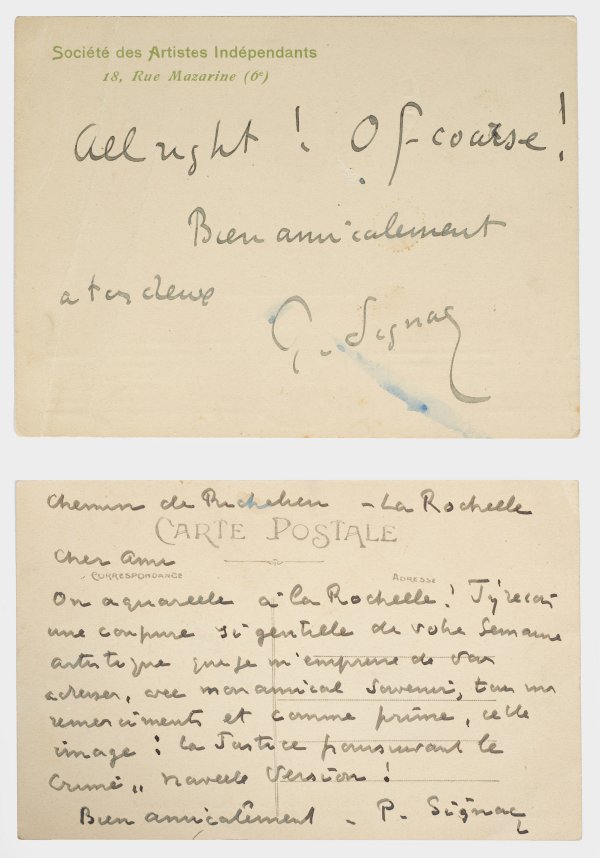 Société des Artistes Indépendants
18, Rue Mazarine (6e)
All right ! Of-coarse !
Bien amicalement
à tous deux
P. Signac
Chemin de Richelieu - La Rochelle
CARTE POSTALE
Cher Ami
CORRESPONDANCE
ADRESSE
On aquarelle à La Rochelle ! J'y reçois
une coupure si gentille de votre Semaine
artistique que je m'empresse de vous
adresser, avec mon amical souvenir, tous mes
remerciments et comme prime, cette
image : la Justice poursuivant le
Crime „ nouvelle version !
Bien amicalement - P. Signac